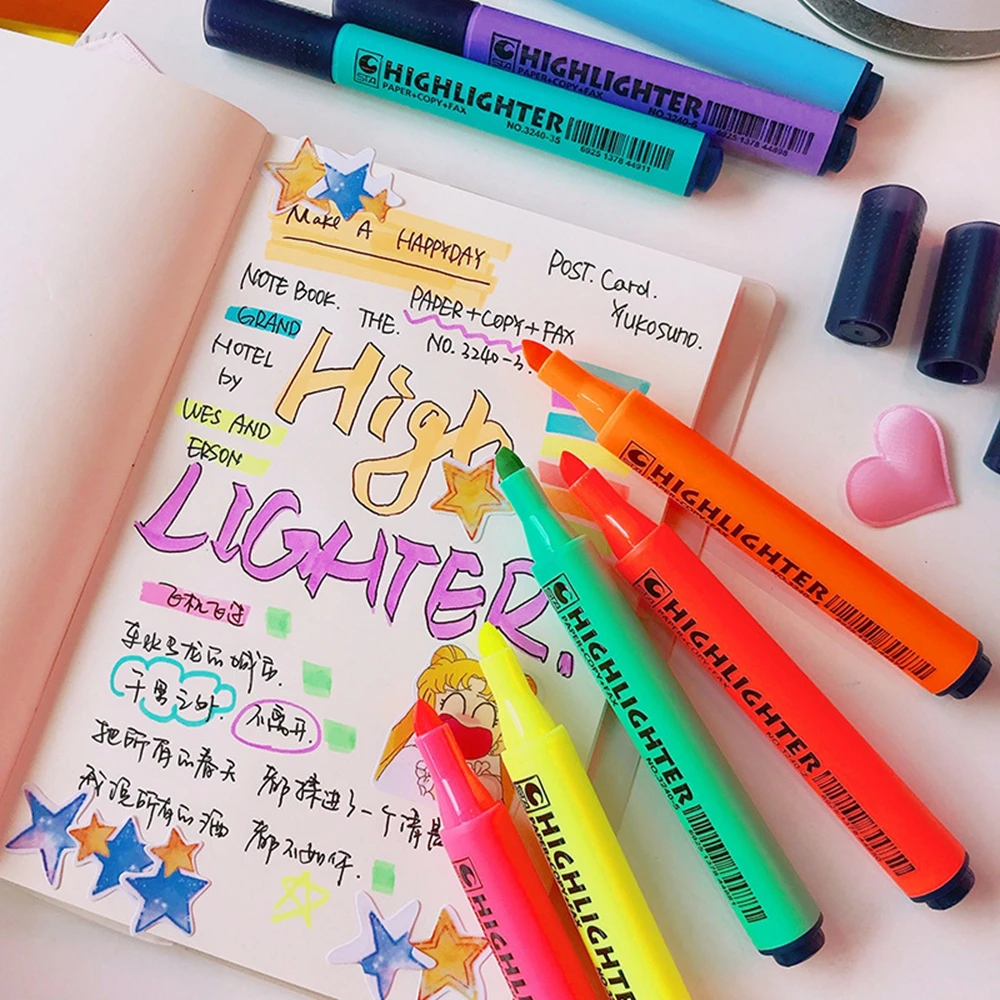 HIGHLIGHTER
PAPER+COPY+FAX
NO.3240-5
6925 1378 44898
STA
HIGHLIGHTER
PAPER+COPY+FAX
NO.3240-35
6925 1378 44911
Make A HAPPYDAY
POST. Card.
Yukosuno.
NOTE BOOK. THE.
PAPER+COPY+FAX
NO. 3240-3.
GRAND
HOTEL
by
WES AND
ERSON
High
LIGHTER.
飞机飞过
车水马龙的城市.
千里之外. 不离开.
把所有的春天 都揉进了一个清晨
我说所有的酒 都不如你.
HIGHLIGHTER
HIGHLIGHTER
STA
HIGHLIGHTER
PAPER+COPY+FAX
NO.3240-5
HIGHLIGHTE
HIGHLIGH